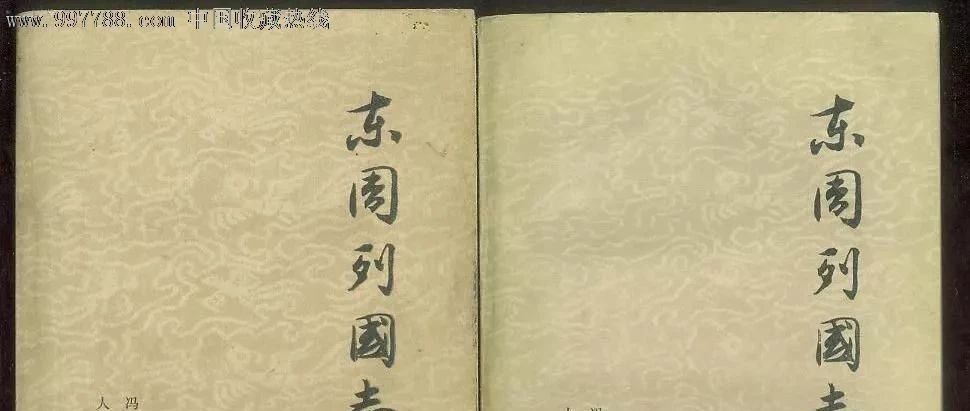 www.997788.com 中国收藏热线
东周列國志
冯
人
东周列國志
冯
人